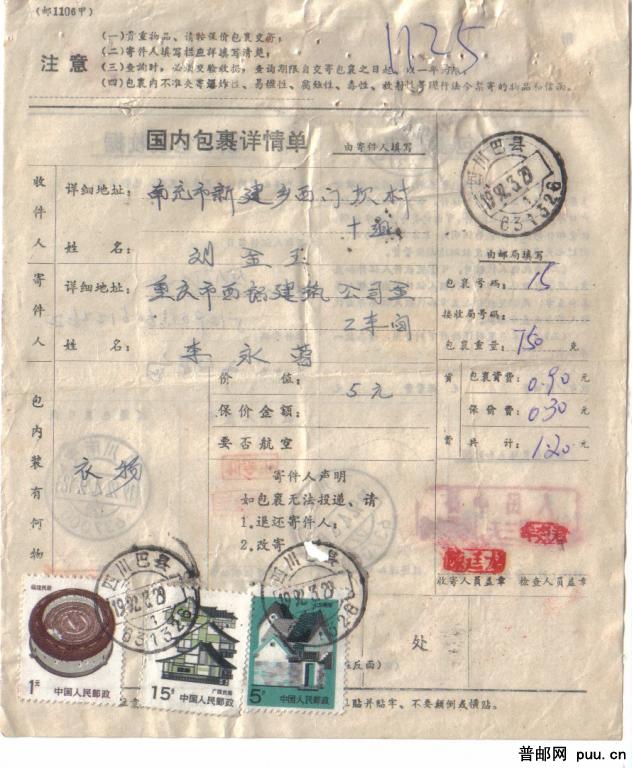 (邮1106甲)
1125
注意
(一)贵重物品、请按保价包裹交寄；
(二)寄件人填写栏应详填写清楚；
(三)查询时，必须交验收据，查询期限自交寄包裹之日起，以一年为限。
(四)包裹内不准夹寄爆炸性、易燃性、腐蚀性、毒性、放射性等现行法令禁寄的物品和信函。
国内包裹详情单
由寄件人填写
四川巴县
1992.3.29
1
631326
收件人
详细地址：南充市新建乡西门坎村
十组
姓名：刘金玉
寄件人
详细地址：重庆市西郊建筑公司金
工车间
姓名：李永蓉
由邮局填写
包裹号码：15
接收局号码：
包裹重量：750克
资
包裹资费：0.90元
保价费：0.30元
费共计：1.20元
价值：5元
保价金额：
要否航空
包内装有何物
衣物
寄件人声明
如包裹无法投递、请
1.退还寄件人；
2.改寄
收寄人员盖章
检查人员盖章
四川巴县
1992.3.29
1
631326
四川巴县
1992.3.29
1
631326
处
福建民居
1元
中国人民邮政
广西民居
15分
中国人民邮政
江苏民居
5分
中国人民邮政
贴并贴牢、不要颠倒或横贴。
普邮网 puu.cn